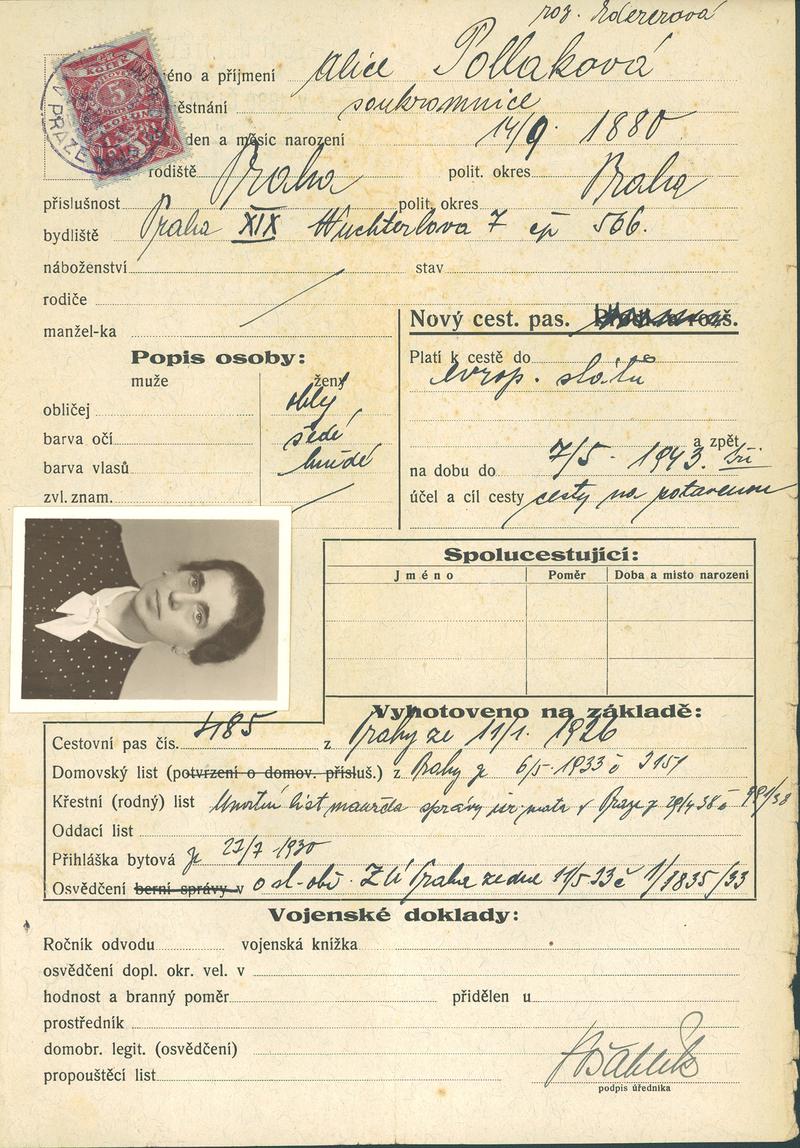 roz. Edererová
jméno a příjmení Alice Pollaková
městnání soukromnice
den a měsíc narození 14/9. 1880
rodiště Praha polit. okres Praha
příslušnost polit. okres
bydliště Praha XIX Wuchterlova 7 čp 566.
náboženství stav
rodiče
manžel-ka
Nový cest. pas.
Popis osoby:
muže ženy
Platí k cestě do
evrop. států
obličej oblý
barva očí šedé
barva vlasů hnědé
zvl. znam.
a zpět
na dobu do 7/5. 1943. tři
účel a cíl cesty cesty na zotavenou
Spolucestující:
Jméno Poměr Doba a místo narození
Vyhotoveno na základě:
Cestovní pas čís. 485 z Prahy ze 11/1. 1926
Domovský list (potvrzení o domov. přísluš.) z Prahy z 6/5. 1933 č 2151
Křestní (rodný) list Úmrtní list manžela správy žid. matr v Praze z 29/4 38 č
Oddací list
Přihláška bytová ze 23/7 1930
Osvědčení berní správy v o sl. obč. ZÚ Praha ze dne 11/5-33 č 1/1835/33
Vojenské doklady:
Ročník odvodu vojenská knížka
osvědčení dopl. okr. vel. v
hodnost a branný poměr přidělen u
prostředník
domobr. legit. (osvědčení)
propouštěcí list
podpis úředníka